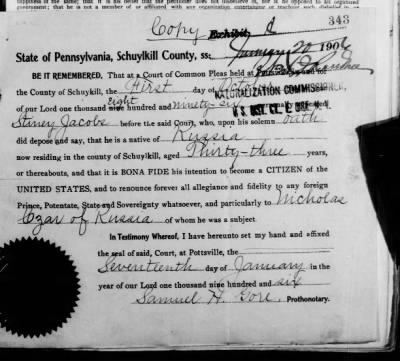 government; that he is not a member of or affiliated with any organization
Copy Exhibit d 343
State of Pennsylvania, Schuylkill County, ss: January 22 1906
BE IT REMEMBERED, That at a Court of Common Pleas held at Pottsville, in and for
the County of Schuykill, the First day of
NATURALIZATION COMMISSIONER,
of our Lord one thousand nine eight hundred and ninety six
Stiney Jacobs before the said Court, who, upon his solemn oath
did depose and say, that he is a native of Russia
now residing in the county of Schuylkill, aged Thirty-three years,
or thereabouts, and that it is BONA FIDE his intention to become a CITIZEN of the
UNITED STATES, and to renounce forever all allegiance and fidelity to any foreign
Prince, Potentate, State and Sovereignty whatsoever, and particularly to Nicholas
Czar of Russia of whom he was a subject.
In Testimony Whereof, I have hereunto set my hand and affixed
the seal of said, Court, at Pottsville, the
Seventeenth day of January in the
year of our Lord one thousand nine hundred and six
Samuel H. Gore, Prothonotary.